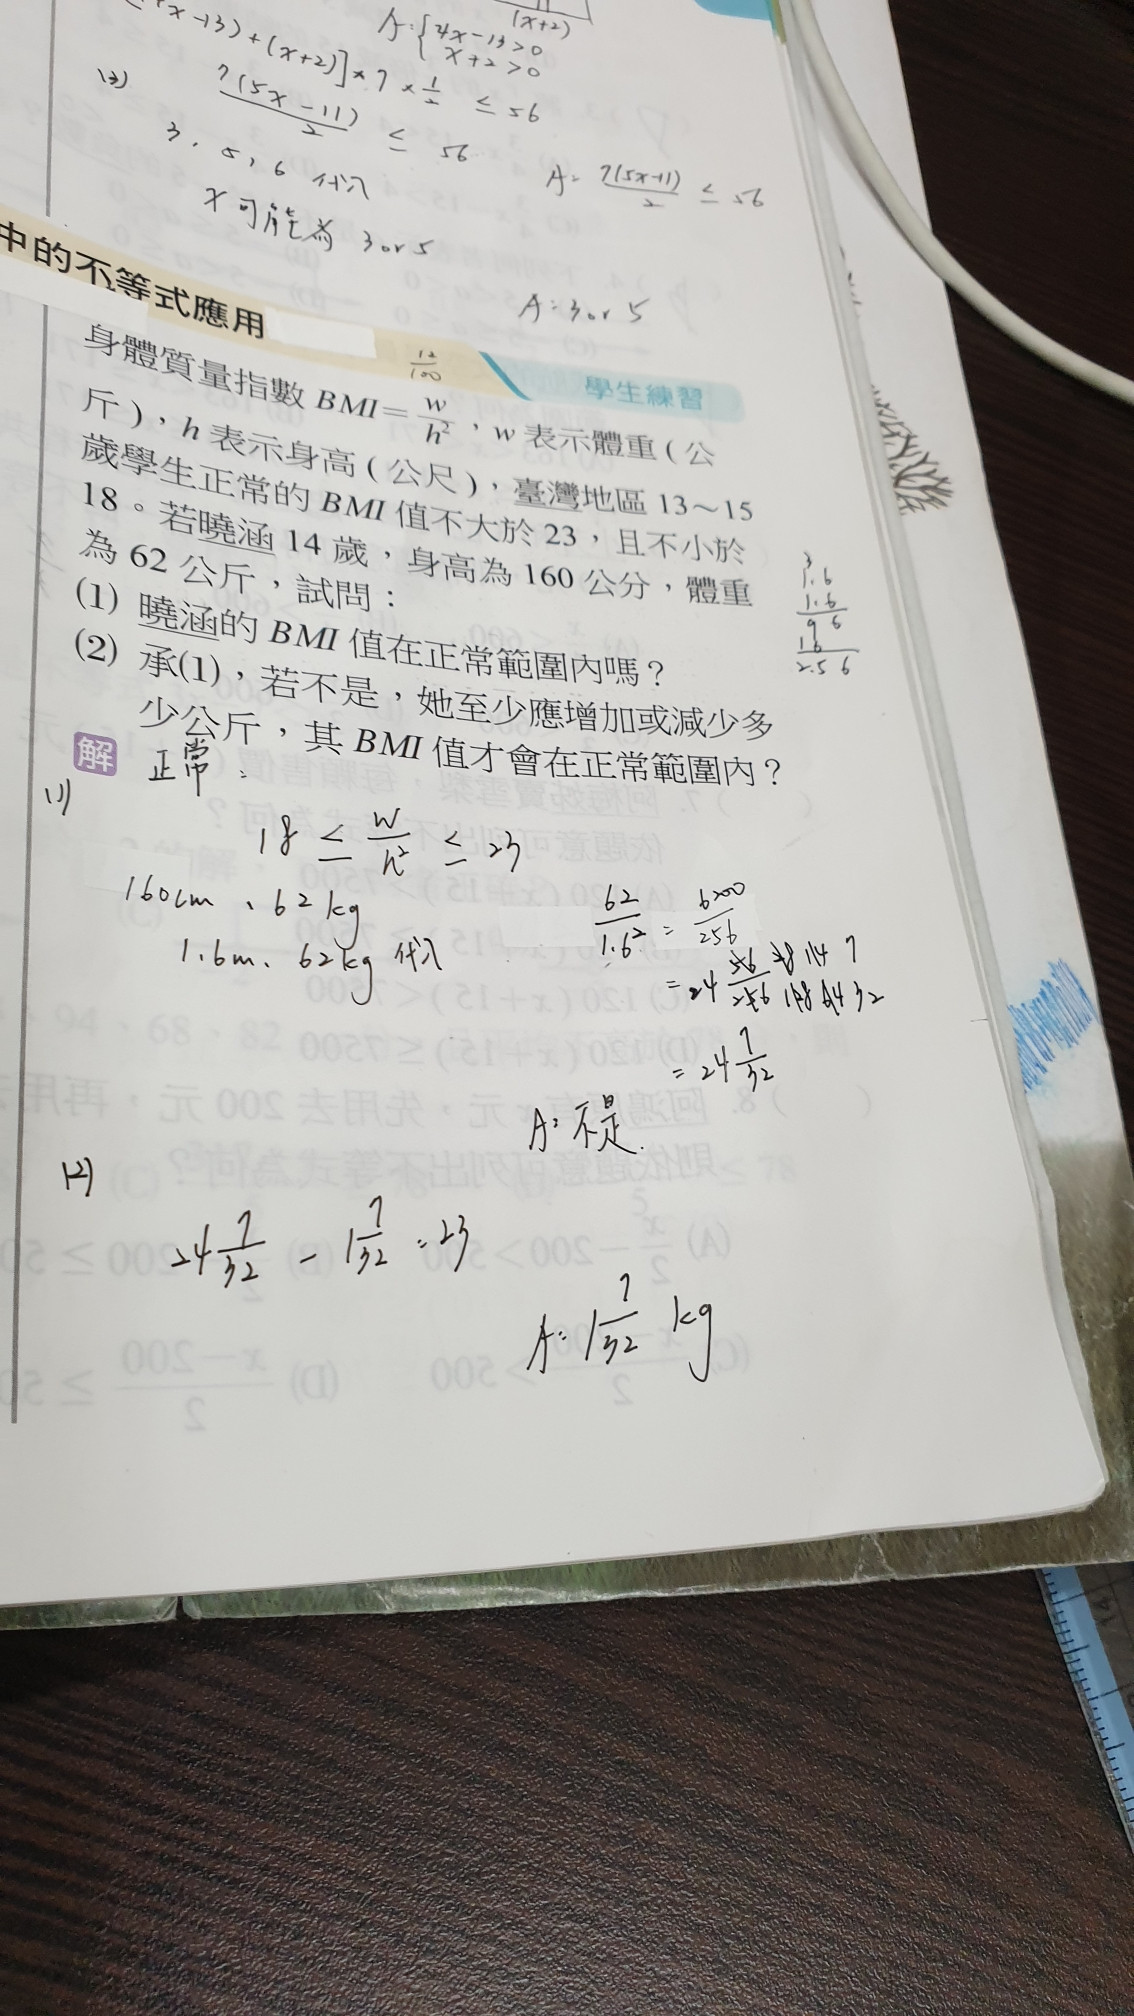 x-13)+(x+2)]×7×1/2 ≤56
(x+2)
A:{4x-13>0
x+2>0
(3)
7(5x-11)/2 ≤ 56
3、5、6 代入
x可能為 3 or 5
A= 7(5x-11)/2 ≤ 56
A:3 or 5
中的不等式應用
學生練習
12/100
身體質量指數 BMI=w/h²,w表示體重(公
斤),h表示身高(公尺),臺灣地區13~15
歲學生正常的BMI值不大於23,且不小於
18。若曉涵14歲,身高為160公分,體重
為62公斤,試問:
(1) 曉涵的BMI值在正常範圍內嗎?
(2) 承(1),若不是,她至少應增加或減少多
少公斤,其BMI值才會在正常範圍內?
3
1.6
1.6
96
16
2.56
解
正常:
(1)
18 ≤ w/h² ≤ 23
160cm、62kg
1.6m、62kg 代入
62/1.6² = 6200/256
=24 56/256 28/128 14/64 7/32
=24 7/32
A:不是.
(2)
24 7/32 - 1 7/32 = 23
A:1 7/32 kg